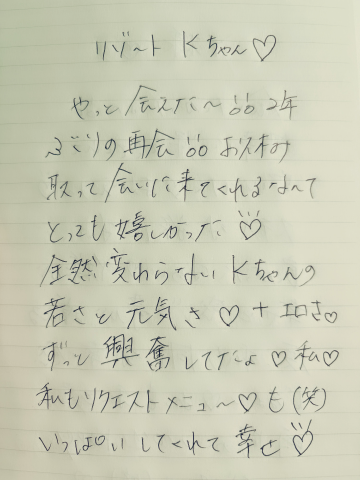 リゾート Kちゃん♡
やっと会えた〜 品 2年
ぶりの再会 品 お休み
取って会いに来てくれるなんて
とっても嬉しかった♡
全然変わらないKちゃんの
若さと元気さ♡+エロさ♡
ずっと興奮してたよ♡私♡
私もリクエストメニュー〜♡も(笑)
いっぱいしてくれて幸せ♡